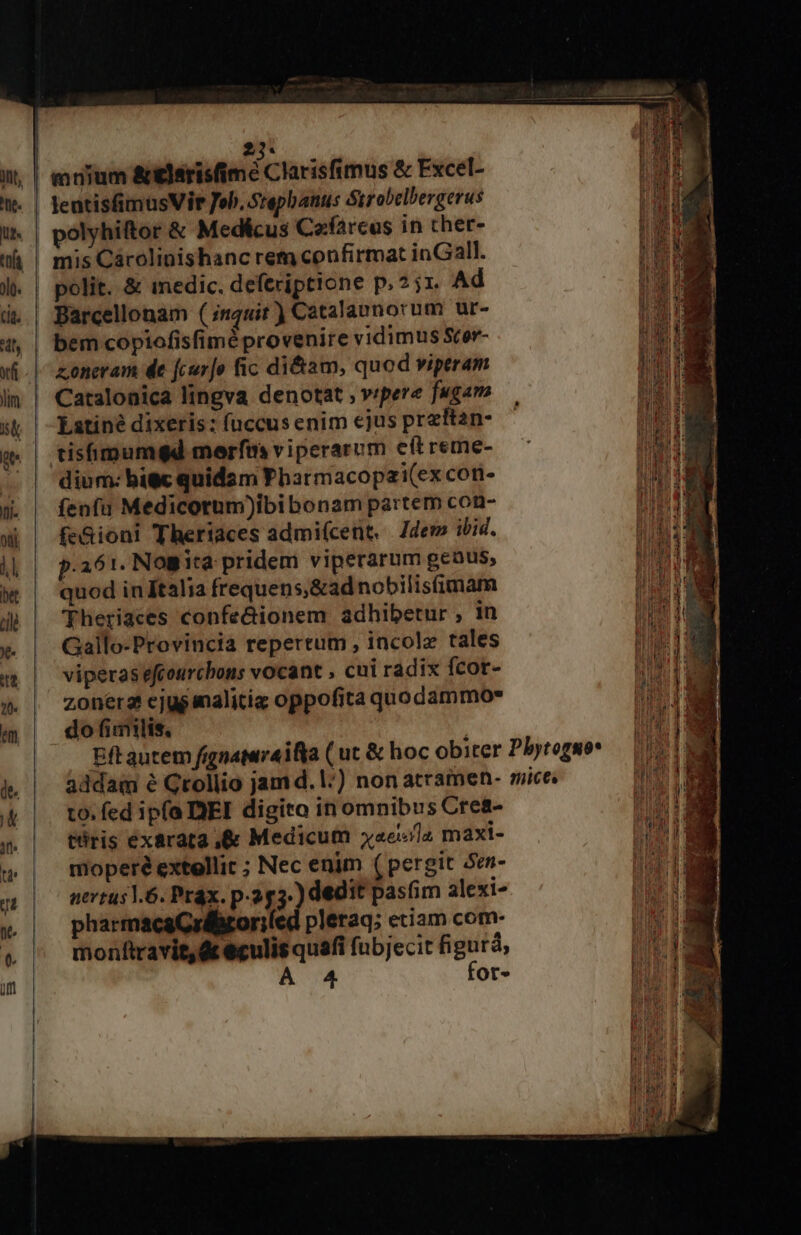 23.
mnium & clarisſimè Clarisſimus & Excel-
lentisſimus Vir Joh. Stephanus Strobelbergerus
polyhiſtor & Medicus Cæſareus in ther-
mis Carolinis hanc rem confirmat in Gall.
polit. & medic. deſcriptione p. 251. Ad
Barcellonam (inquit) Catalaunorum ur-
bem copioſisſimè provenire vidimus Scor-
zoneram de ſcurſo ſic dictam, quod viperam
Catalonica lingva denotat, viperæ fugam
Latinè dixeris: ſuccus enim ejus præſtan-
tisſimum ad morſus viperarum eſt reme-
dium: hinc quidam Pharmacopæi (ex con-
ſenſu Medicorum) ibi bonam partem con-
fectioni Theriaces admiſcent. Idem ibid.
p. 261. Non ita pridem viperarum genus,
quod in Italia frequens, & ad nobilisſimam
Theriaces confectionem adhibetur, in
Gallo-Provincia repertum, incolæ tales
viperas eſcourchons vocant, cui radix ſcor-
zoneræ ejus malitiæ oppoſita quodammo-
do ſimilis.
Eſt autem ſignatura iſta (ut & hoc obiter Phytognо-
addam è Crollio jam d. l.) non atramen- mice.
to, ſed ipſo DEI digito in omnibus Crea-
turis exarata, & Medicum maxi-
moperè extollit; Nec enim (pergit Sen-
nertus l. 6. Prax. p. 253.) dedit pasſim alexi-
pharmaca Creator; ſed pleraq; etiam com-
monſtravit, & oculis quaſi ſubjecit figurâ,
A 4 for-